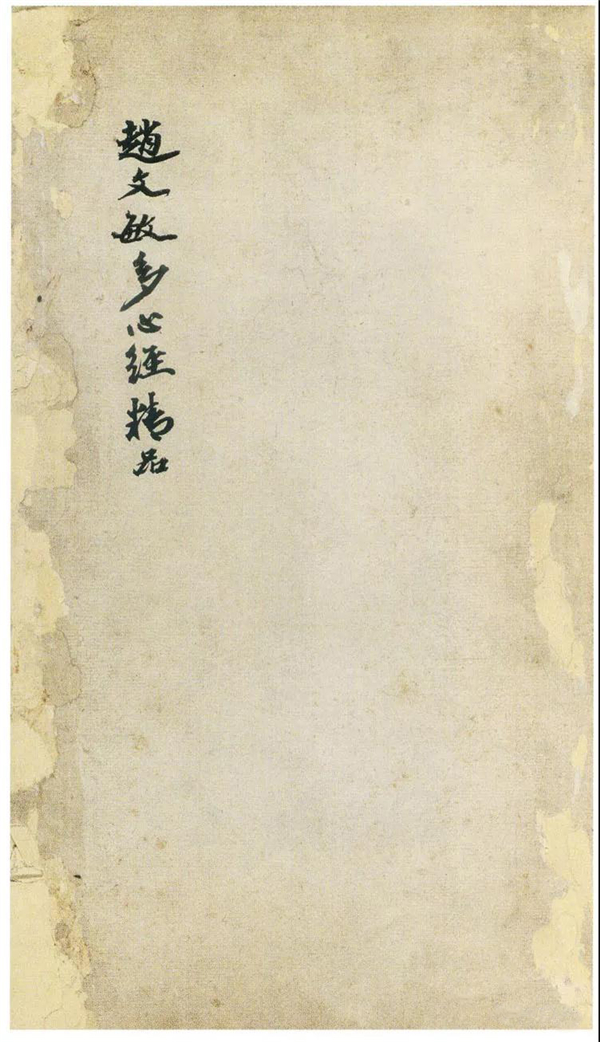 趙文敏多心經精品